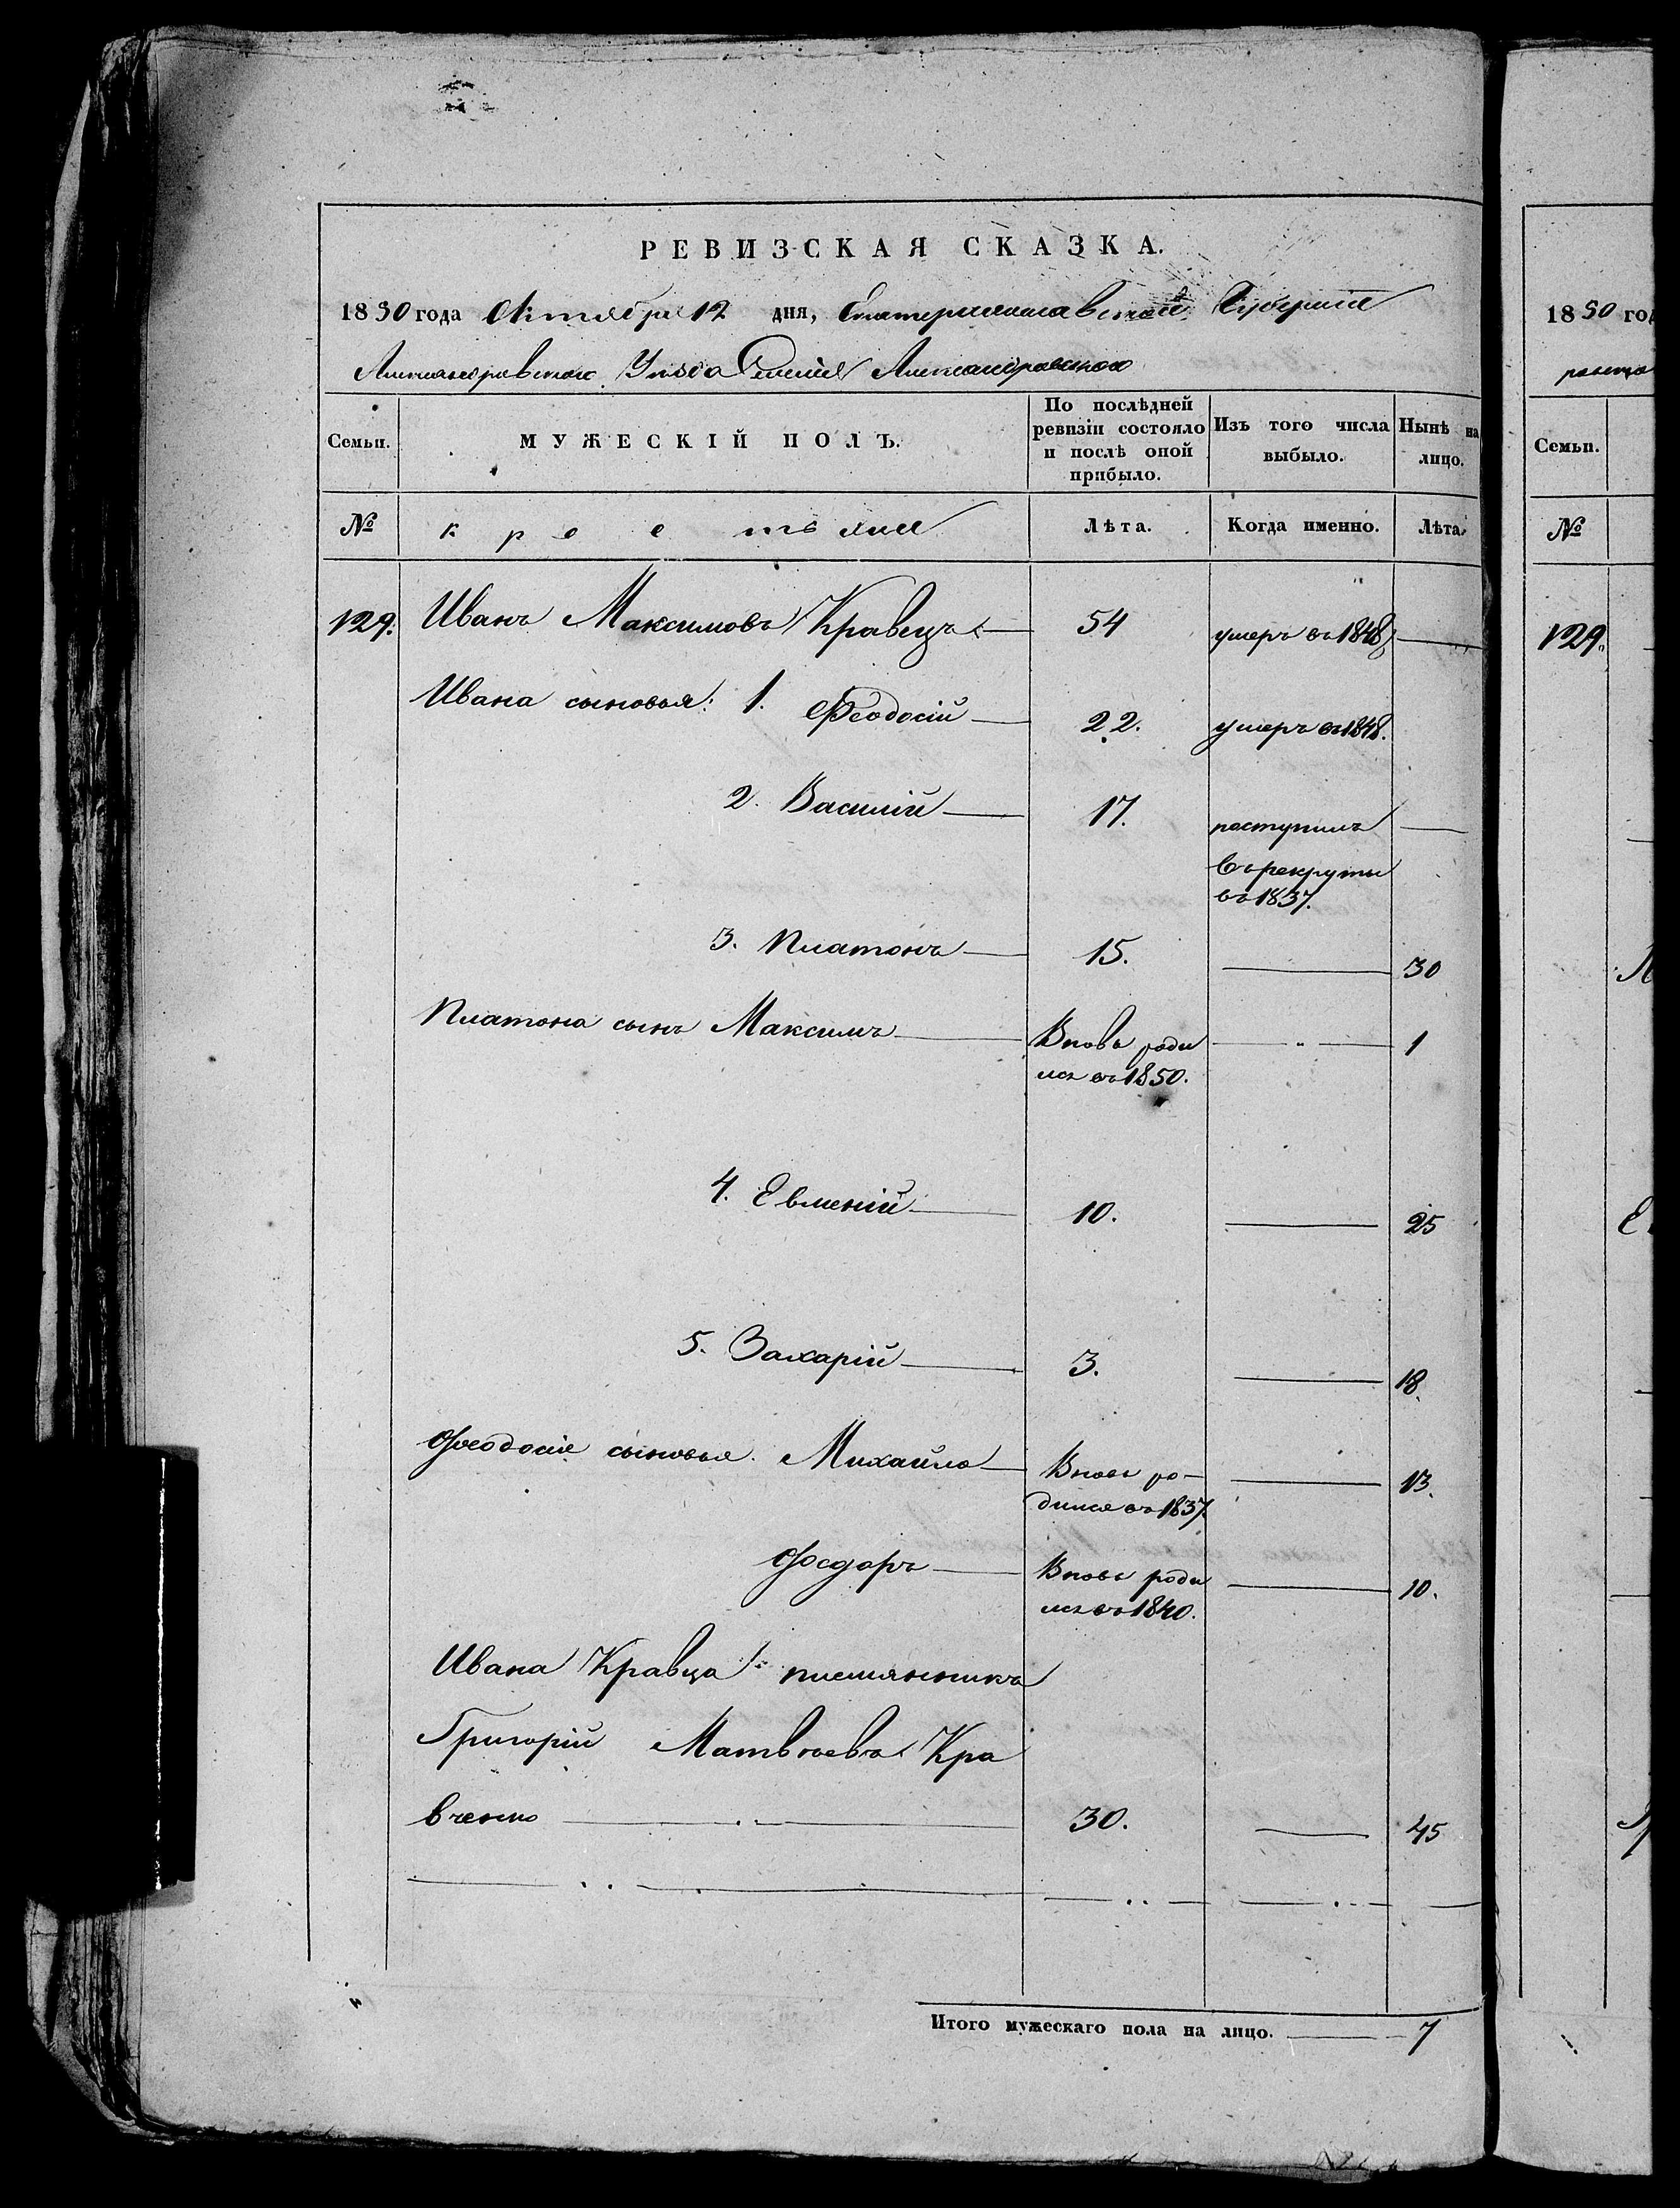 РЕВИЗСКАЯ СКАЗКА.
1850 года Октября 12 дня, Екатеринославской Губернии
Александровскаго Уѣзда Селенія Александровскаго
Семьи. МУЖЕСКІЙ ПОЛЪ. По послѣдней ревизіи состояло и послѣ оной прибыло. Изъ того числа выбыло. Нынѣ на лицо.
№ крестьяне Лѣта. Когда именно. Лѣта.
129. Иванъ Максимовъ Кравецъ 54 умеръ въ 1848
Ивана сыновья: 1. Феодосій 22. умеръ въ 1848.
2. Василій 17. поступилъ
въ рекруты
въ 1837.
3. Платонъ 15. 30
Платона сынъ Максимъ Вновь роди 1
лся въ 1850.
4. Евменій 10. 25
5. Захарій 3. 18.
Феодосія сыновья. Михайло Вновь ро- 13.
дился въ 1837.
Федоръ Вновь роди 10.
лся въ 1840.
Ивана Кравца племянникъ
Григорій Матвѣевъ Кра
вченко 30. 45
Итого мужескаго пола на лицо. 7
1850 год
Семьи.
№
129.